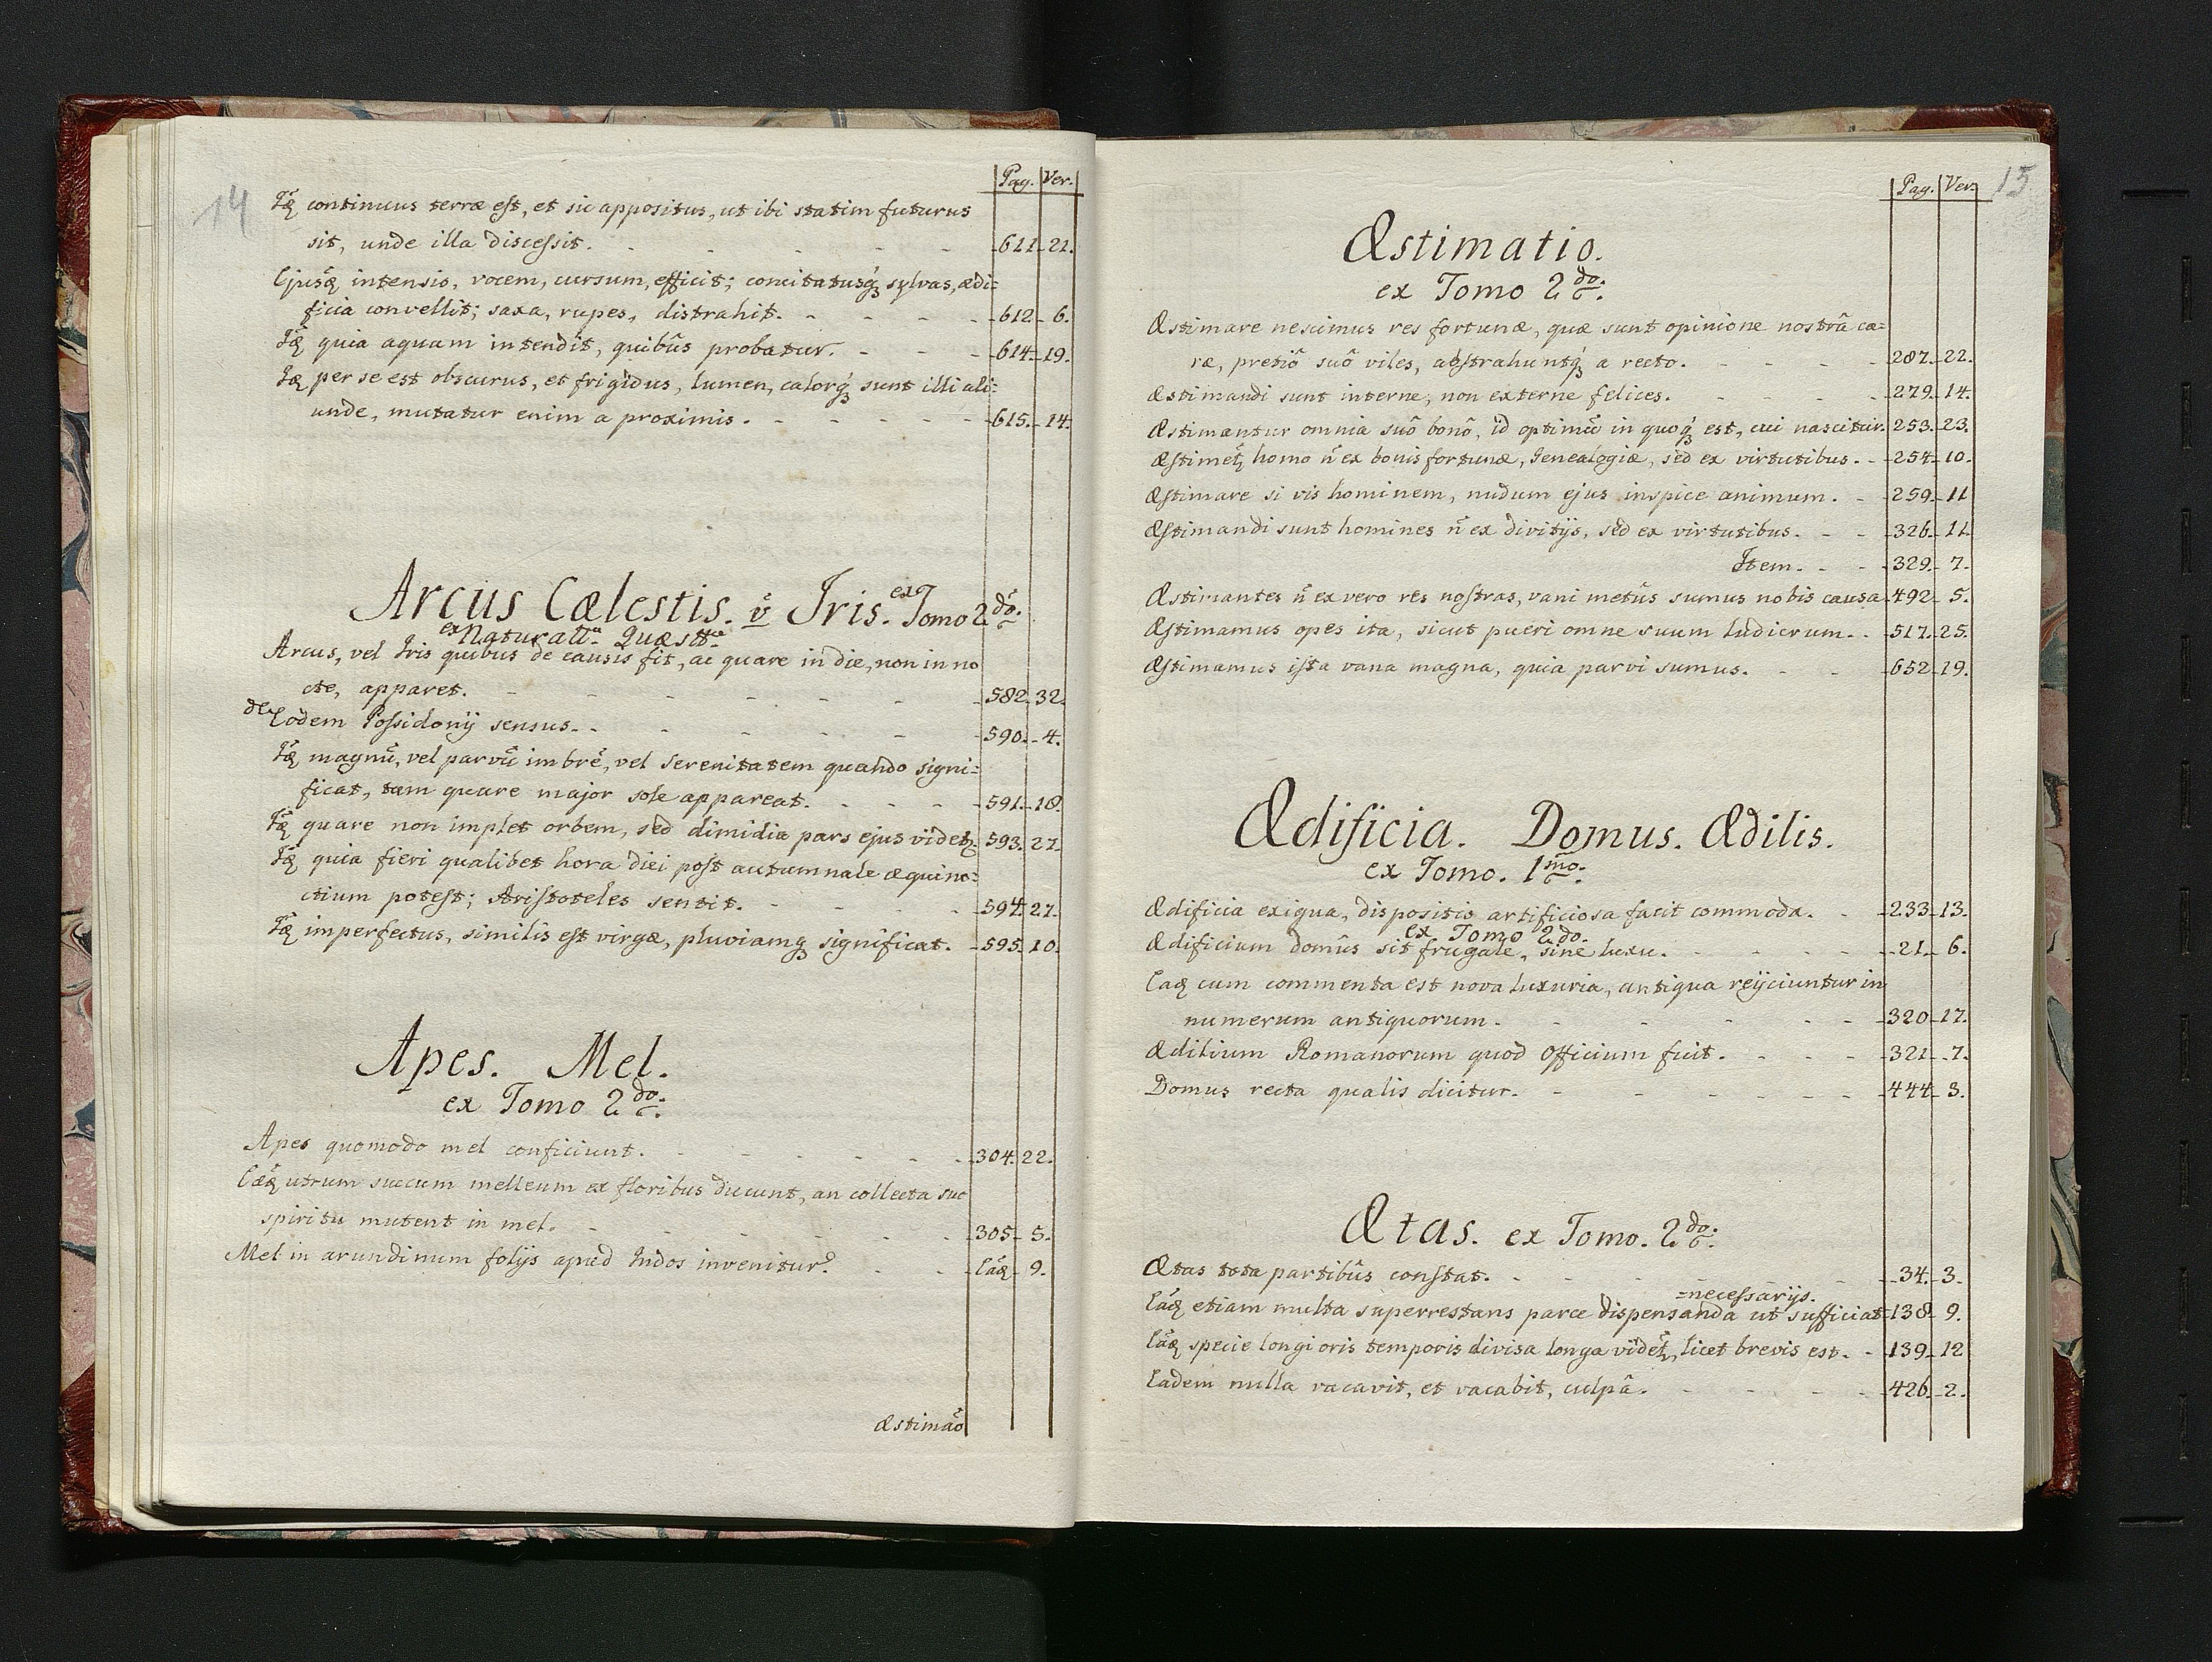 14
Pag. Ver.
Idẽ continuus terræ est, et sic appositus, ut ibi statim futurus
sit, unde illa discessit. - 611. 21.
Ejusdẽ intensio, vocem, cursum, efficit; concitatusq́ sylvas, ædi=
ficia convellit; saxa, rupes, distrahit. - 612. 6.
Idẽ quia aquam intendit, quibûs probatur. - 614. 19.
Idẽ per se est obscurus, et frigidus, lumen, calorq́ sunt illi ali=
unde, mutatur enim a proximis. - 615. 14.
Arcus Cælestis. v̊ Iris. ex Tomo 2do.
ex Naturall. Quæstt.
Arcus, vel Iris quibus de causis fit, ac quare in die, non in no
cte, apparet. - 582. 32.
de Eodem Possidonij sensus. - 590. 4.
Idẽ magnũ, vel parvũ imbrẽ, vel serenitatem quando signi=
ficat, tum quare major sole appareat. - 591. 18.
Idẽ quare non implet orbem, sed dimidia pars ejus videtʒ. 593. 27.
Idẽ quia fieri qualibet hora diei post autumnale æquino=
ctium potest; Aristoteles sentit. - 594. 27.
Idẽ imperfectus, similis est virgæ, pluviamqʒ significat. - 595. 10.
Apes. Mel.
ex Tomo 2do.
Apes quomodo mel conficiunt. - 304. 22.
Eædẽ utrum succum melleum ex floribus ducunt, an collecta suo
spiritu mutent in mel. - 305. 5.
Mel in arundinum folijs apud Indos invenitur? - Eãdẽ 9.
Æstimaõ
15
Pag. Ver.
Æstimatio.
ex Tomo 2do.
Æstimare nescimus res fortunæ, quæ sunt opinione nostrâ ca=
ræ, pretiô suô viles, abstrahuntq́ a recto. - 287. 22.
Æstimandi sunt interne, non externe felices. - 279. 14.
Æstimantur omnia suô bonô, id optimũ in quoq́ est, cui nascitur. 253. 23.
Æstimetʒ homo ñ ex bonis fortunæ, Genealogiæ, sed ex virtutibus. - 254. 10.
Æstimare si vis hominem, nudum ejus inspice animum. - 259. 11
Æstimandi sunt homines ñ ex divitijs, sed ex virtutibus. - 326. 11
Item. - 329. 7.
Æstimantes ñ ex vero res nostras, vani metûs sumus nobis causa. 492. 5.
Æstimamus opes ita, sicut pueri omne suum ludicrum. - 517. 25.
Æstimamus ista vana magna, quia parvi sumus. - 652. 19.
Ædificia. Domus. Ædilis.
ex Tomo. 1mo.
Ædificia exigua, dispositio artificiosa facit commoda. - 233. 13.
ex Tomo 2do.
Ædificium domûs sit frugale, sine luxu. - 21. 6.
Eadẽ cum commenta est nova luxuria, antiqua reijciuntur in
numerum antiquorum. - 320. 17.
Ædilium Romanorum quod officium fuit. - 321. 7.
Domus recta qualis dicitur. - 444. 3.
Ætas. ex Tomo. 2do.
Ætas tota partibûs constat. - 34. 3.
=necessarijs.
Eadẽ etiam multa superrestans parce dispensanda ut sufficiat 138. 9.
Eadẽ specie longioris temporis divisa longa videtʒ, licet brevis est. - 139. 12
Eadem nulla vacavit, et vacabit, culpâ. - 426. 2.